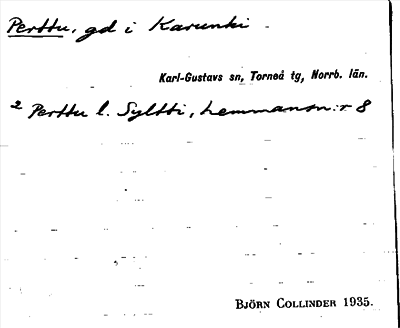 Perttu, gd i Karunki.
Karl-Gustavs sn, Torneå tg, Norrb. län.
2 Perttu l. Syltti, hemmansn:r 8
BJÖRN COLLINDER 1935.